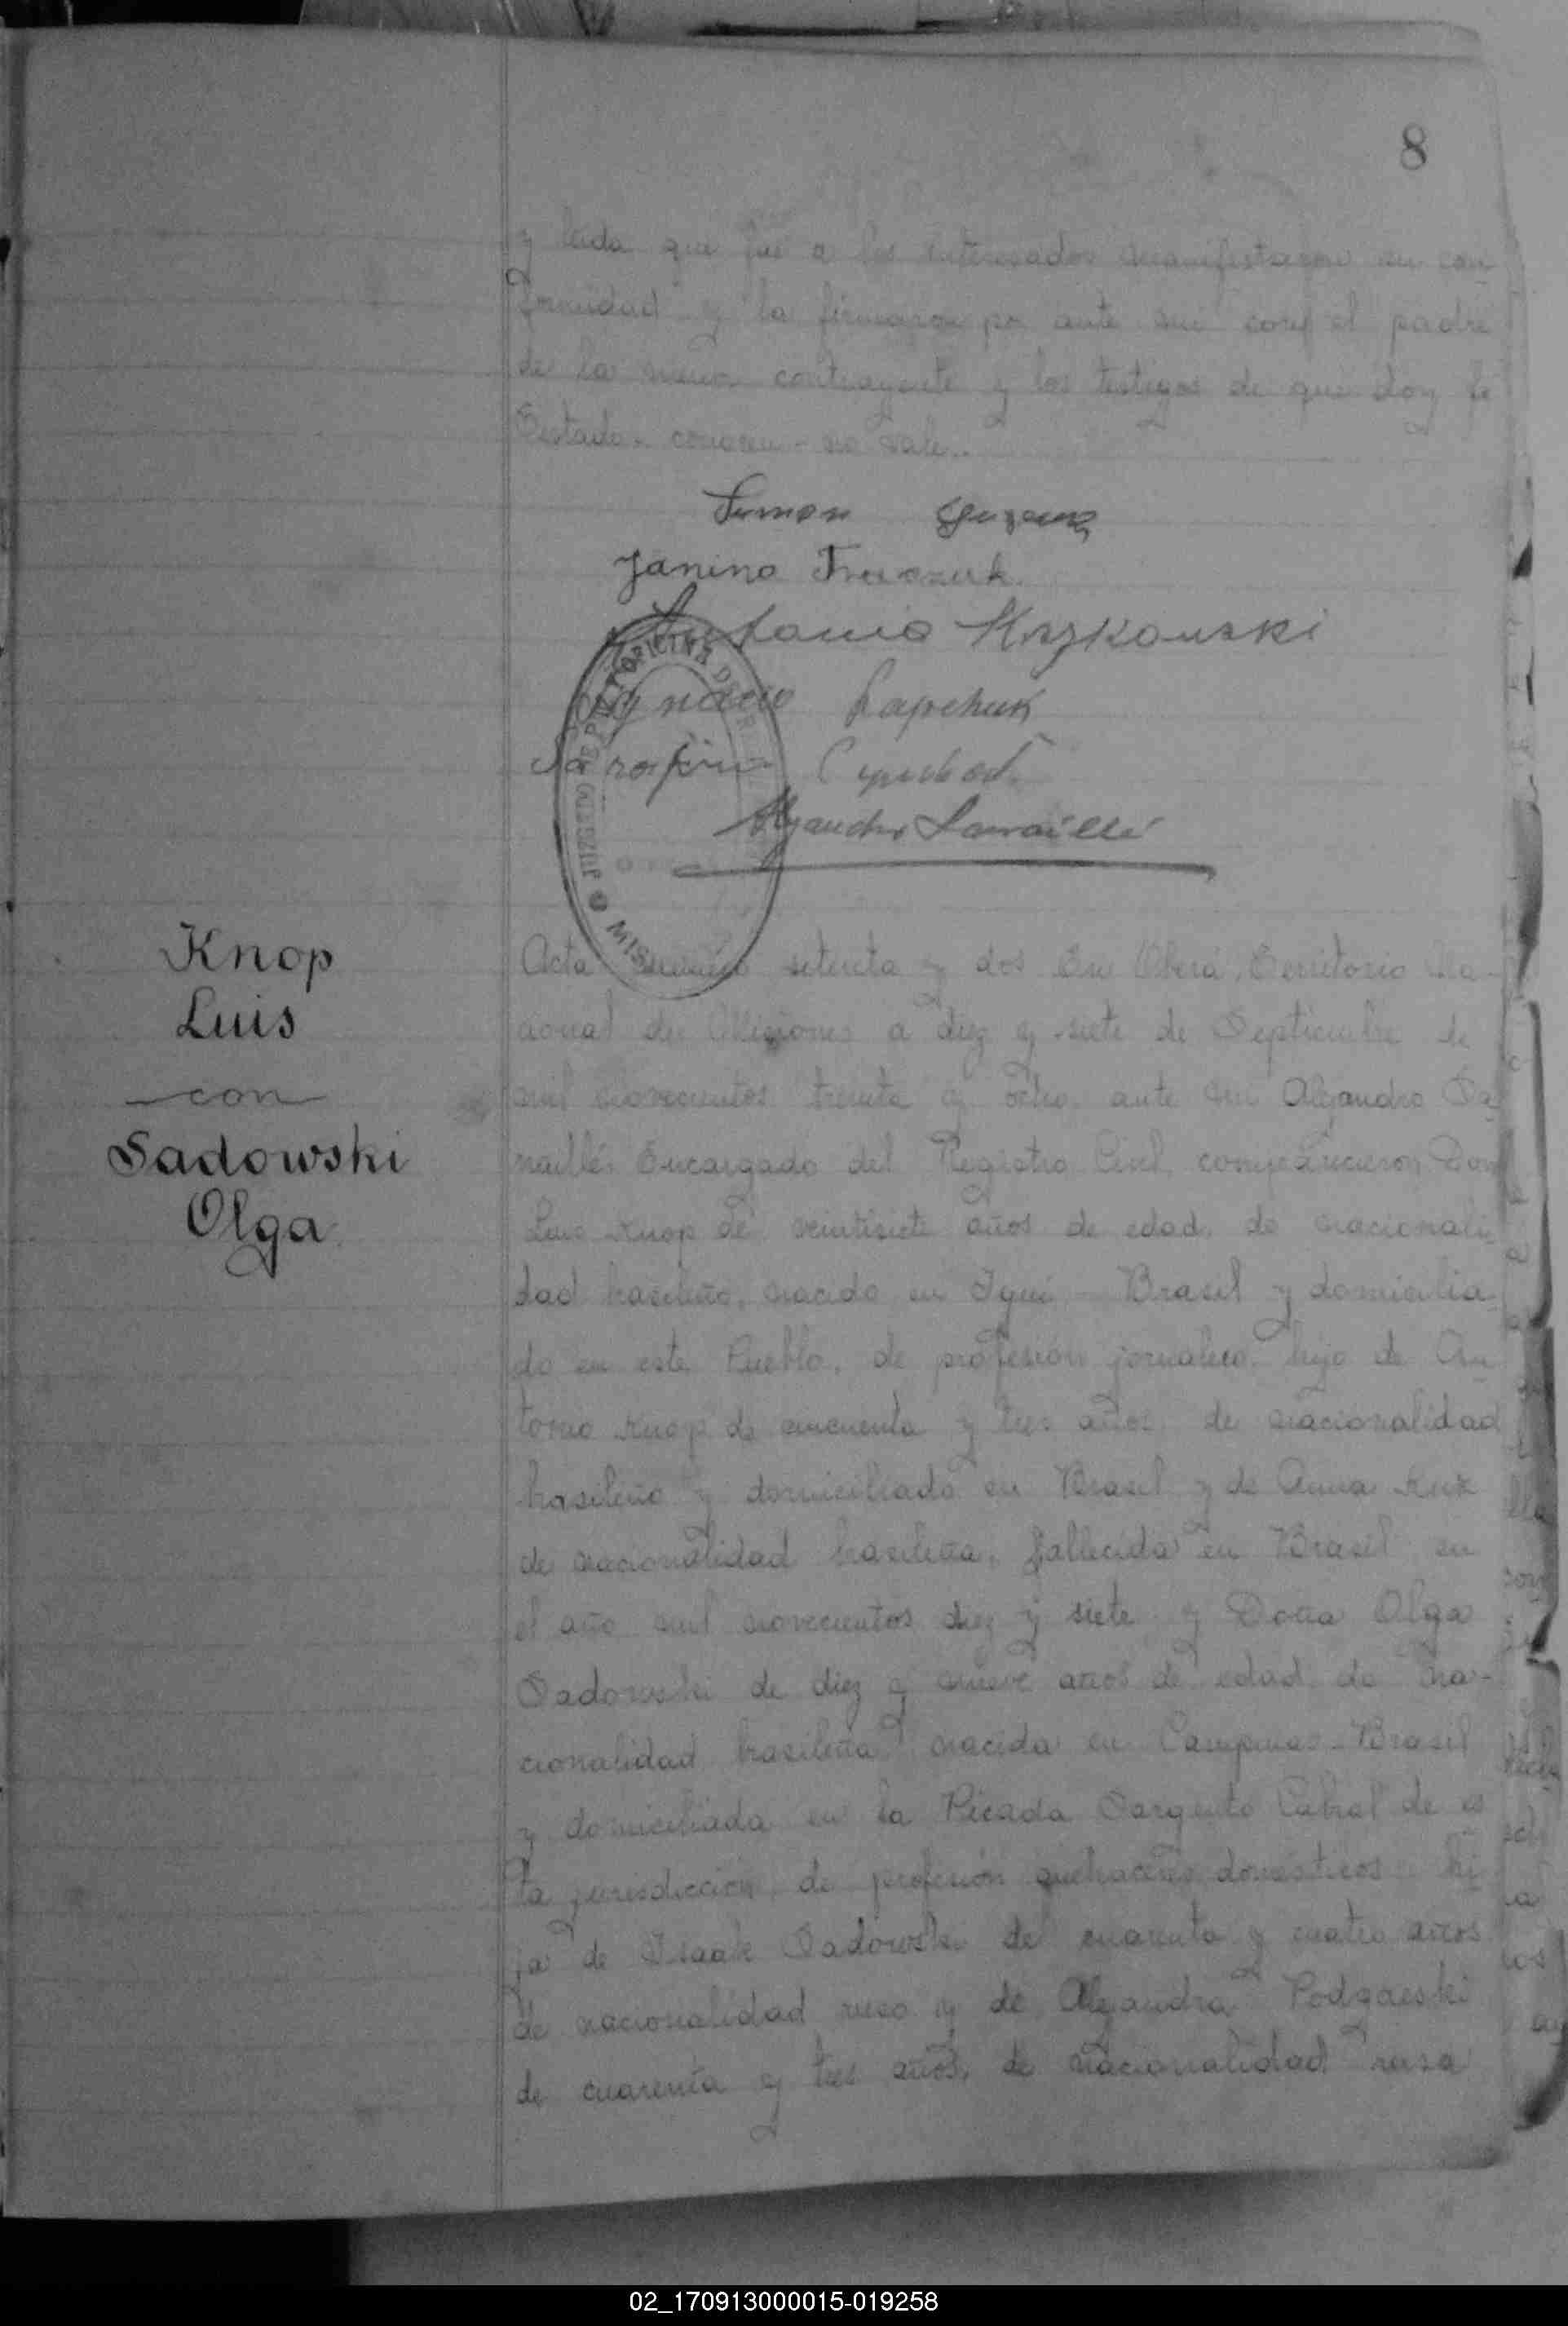 8
y leida que fué a los interesados manifestaron su con
formidad y la firmaron por ante mi con el padre
de la menor contrayente y los testigos de que doy fé
Testado - conocen - no vale.
Janina
Antonio
Ignacio
Alejandro
OFICINA
JUZGADO DE PAZ
Knop
Luis
con
Sadowski
Olga
Acta número setenta y dos En Oberá, Territorio Na-
cional de Misiones a diez y siete de Septiembre de
mil novecientos treinta y ocho, ante mi Alejandro
Encargado del Registro Civil, comparecieron Don
Luis Knop de veintisiete años de edad, de nacionali-
dad brasileño, nacido en Brasil y domicilia-
do en este Pueblo, de profesión jornalero, hijo de An
tonio Knop de cincuenta y tres años, de nacionalidad
brasileño y domiciliado en Brasil y de Anna
de nacionalidad brasileña, fallecida en Brasil en
el año mil novecientos diez y siete y Doña Olga
Sadowski de diez y nueve años de edad, de na-
cionalidad brasileña, nacida en Campinas - Brasil
y domiciliada en la Picada Sargento Cabral de es
ta jurisdicción, de profesión quehaceres domésticos, hi
ja de Isaak Sadowski de cuarenta y cuatro años
de nacionalidad ruso y de Alejandra
de cuarenta y tres años, de nacionalidad rusa
02_170913000015-019258